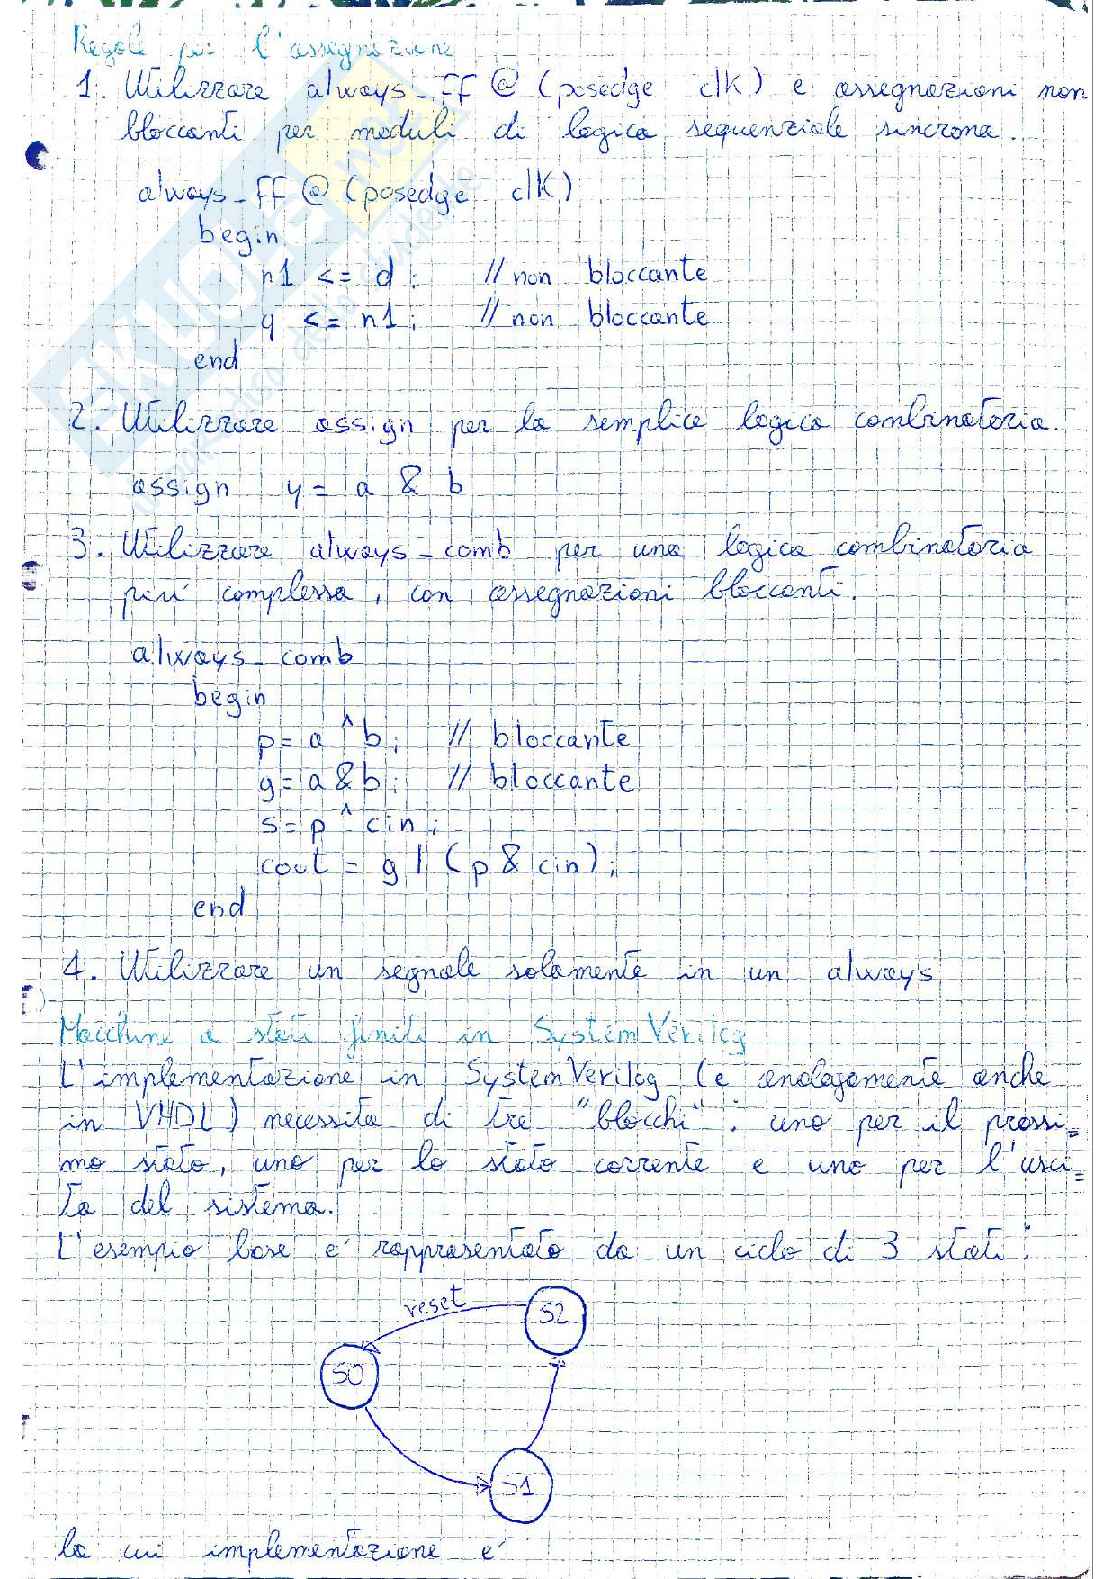 Regole per l'assegnazione
1. Utilizzare always_ff @ (posedge clk) e assegnazioni non
bloccanti per moduli di logica sequenziale sincrona.
always_ff @ (posedge clk)
begin
n1 <= d; // non bloccante
q <= n1; // non bloccante
end
2. Utilizzare assign per la semplice logica combinatoria.
assign y = a & b
3. Utilizzare always_comb per una logica combinatoria
più complessa, con assegnazioni bloccanti.
always_comb
begin
p = a ^ b; // bloccante
g = a & b; // bloccante
s = p ^ cin;
cout = g | (p & cin);
end
4. Utilizzare un segnale solamente in un always
Macchine a stati finiti in SystemVerilog
L'implementazione in SystemVerilog (e analogamente anche
in VHDL) necessita di tre "blocchi": uno per il prossi=
mo stato, uno per lo stato corrente e uno per l'usci=
ta del sistema.
L'esempio base è rappresentato da un ciclo di 3 stati:
reset
S2
S0
S1
la cui implementazione è